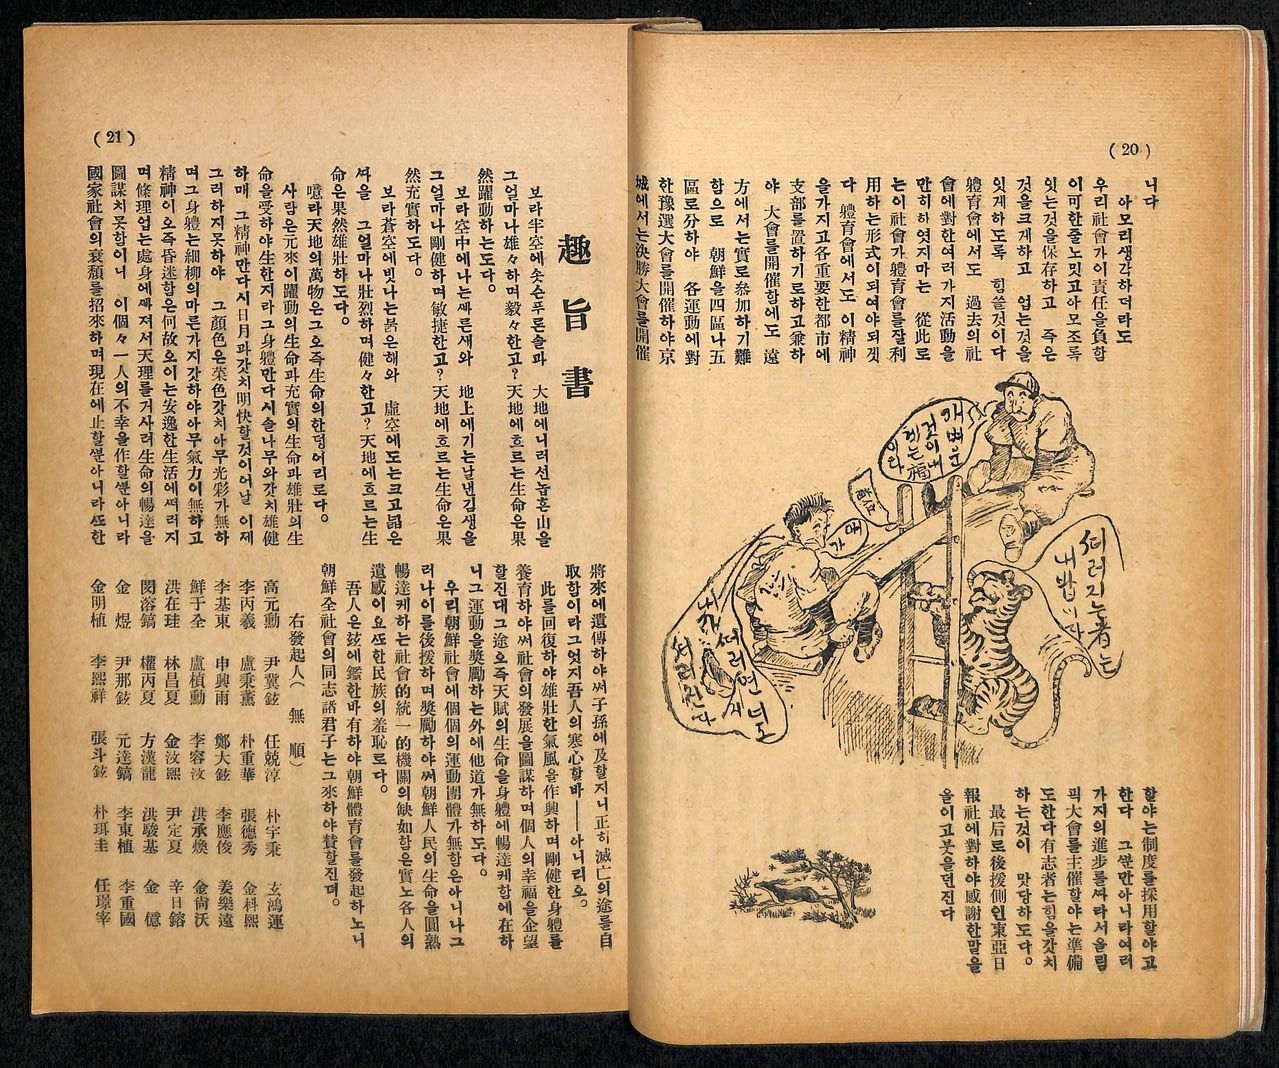 (20)
니다
아모리생각하더라도
우리社會가이責任을負함
이可한줄노밋고아모조록
잇는것을保存하고 즉은
것을크게하고 업는것을
잇게하도록 힘쓸것이다
體育會에서도 過去의社
會에對한여러가지活動을
만히하엿지마는 從此로
는이社會가體育會를잘利
用하는形式이되여야되겟
다 體育會에서도이精神
을가지고各重要한都市에
支部를置하기로하고兼하
야 大會를開催함에도 遠
方에서는實로參加하기難
함으로 朝鮮을四區나五
區로分하야 各運動에對
한豫選大會를開催하야京
城에서는決勝大會를開催
할야는制度를採用할야고
한다 그뿐만아니라여러
가지의進步를싸라서올림
픽大會를主催할야는準備
도한다有志者는힘을갓치
하는것이 맛당하도다。
最后로後援側인東亞日
報社에對하야感謝한말을
올이고붓을던진다
떠러지는者는
내밥이다
(21)
趣旨書
보라半空에솟슨푸른솔과 大地에니러선놉흔山을
그얼마나雄々하며毅々한고?天地에흐르는生命은果
然躍動하는도다。
보라空中에나는빠른새와 地上에기는날낸김생을
그얼마나剛健하며敏捷한고?天地에흐르는生命은果
然充實하도다。
보라蒼空에빗나는붉은해와 虛空에도는크고晶은
싸을 그얼마나壯烈하며健々한고?天地에흐르는生
命은果然雄壯하도다。
噫라天地의萬物은그오즉生命의한덩어리로다。
사람은元來이躍動의生命과充實의生命과雄壯의生
命을受하야生한지라그身體만다시솔나무와갓치雄健
하매 그精神만다시日月과갓치明快할것이어날 이제
그러하지못하야 그顔色은菜色갓치아무光彩가無하
며그身體는細柳의마른가지갓하야아무氣力이無하고
精神이오즉昏迷함은何故오이는安逸한生活에떠러지
며條理업는處身에빠져서天理를거사려生命의暢達을
圖謀치못함이니 이個々一人의不幸을作할뿐아니라
國家社會의衰頹를招來하며現在에止할뿐아니라또한
將來에遺傳하야써子孫에及할지니正히滅亡의途를自
取함이라그엇지吾人의寒心할바──아니리오。
此를回復하야雄壯한氣風을作興하며剛健한身體를
養育하야써社會의發展을圖謀하며個人의幸福을企望
할진대그途오즉天賦의生命을身體에暢達케함에在하
니그運動을奬勵하는外에他道가無하도다。
우리朝鮮社會에個個의運動團體가無함은아니나그
러나이를後援하며奬勵하야써朝鮮人民의生命을圓熟
暢達케하는社會的統一的機關의缺如함은實노各人의
遺感이요또한民族의羞恥로다。
吾人은玆에鑑한바有하야朝鮮體育會를發起하노니
朝鮮全社會의同志諸君子는그來하야賛할진뎌。
右發起人( 無 順)
高元勳 尹冀鉉 任兢淳 朴宇秉 玄鴻運
李丙羲 盧秉薰 朴重華 張德秀 金科熙
李基東 申興雨 鄭大鉉 李應俊 姜樂遠
鮮于全 盧楨勳 李容汶 洪承煥 金尙沃
洪在珪 林昌夏 金汶熙 尹定夏 辛日鎔
閔溶鎬 權丙夏 方漢龍 洪駿基 金 億
金 煜 尹那鉉 元達鎬 李東植 李重國
金明植 李熙祥 張斗鉉 朴珥圭 任璟宰